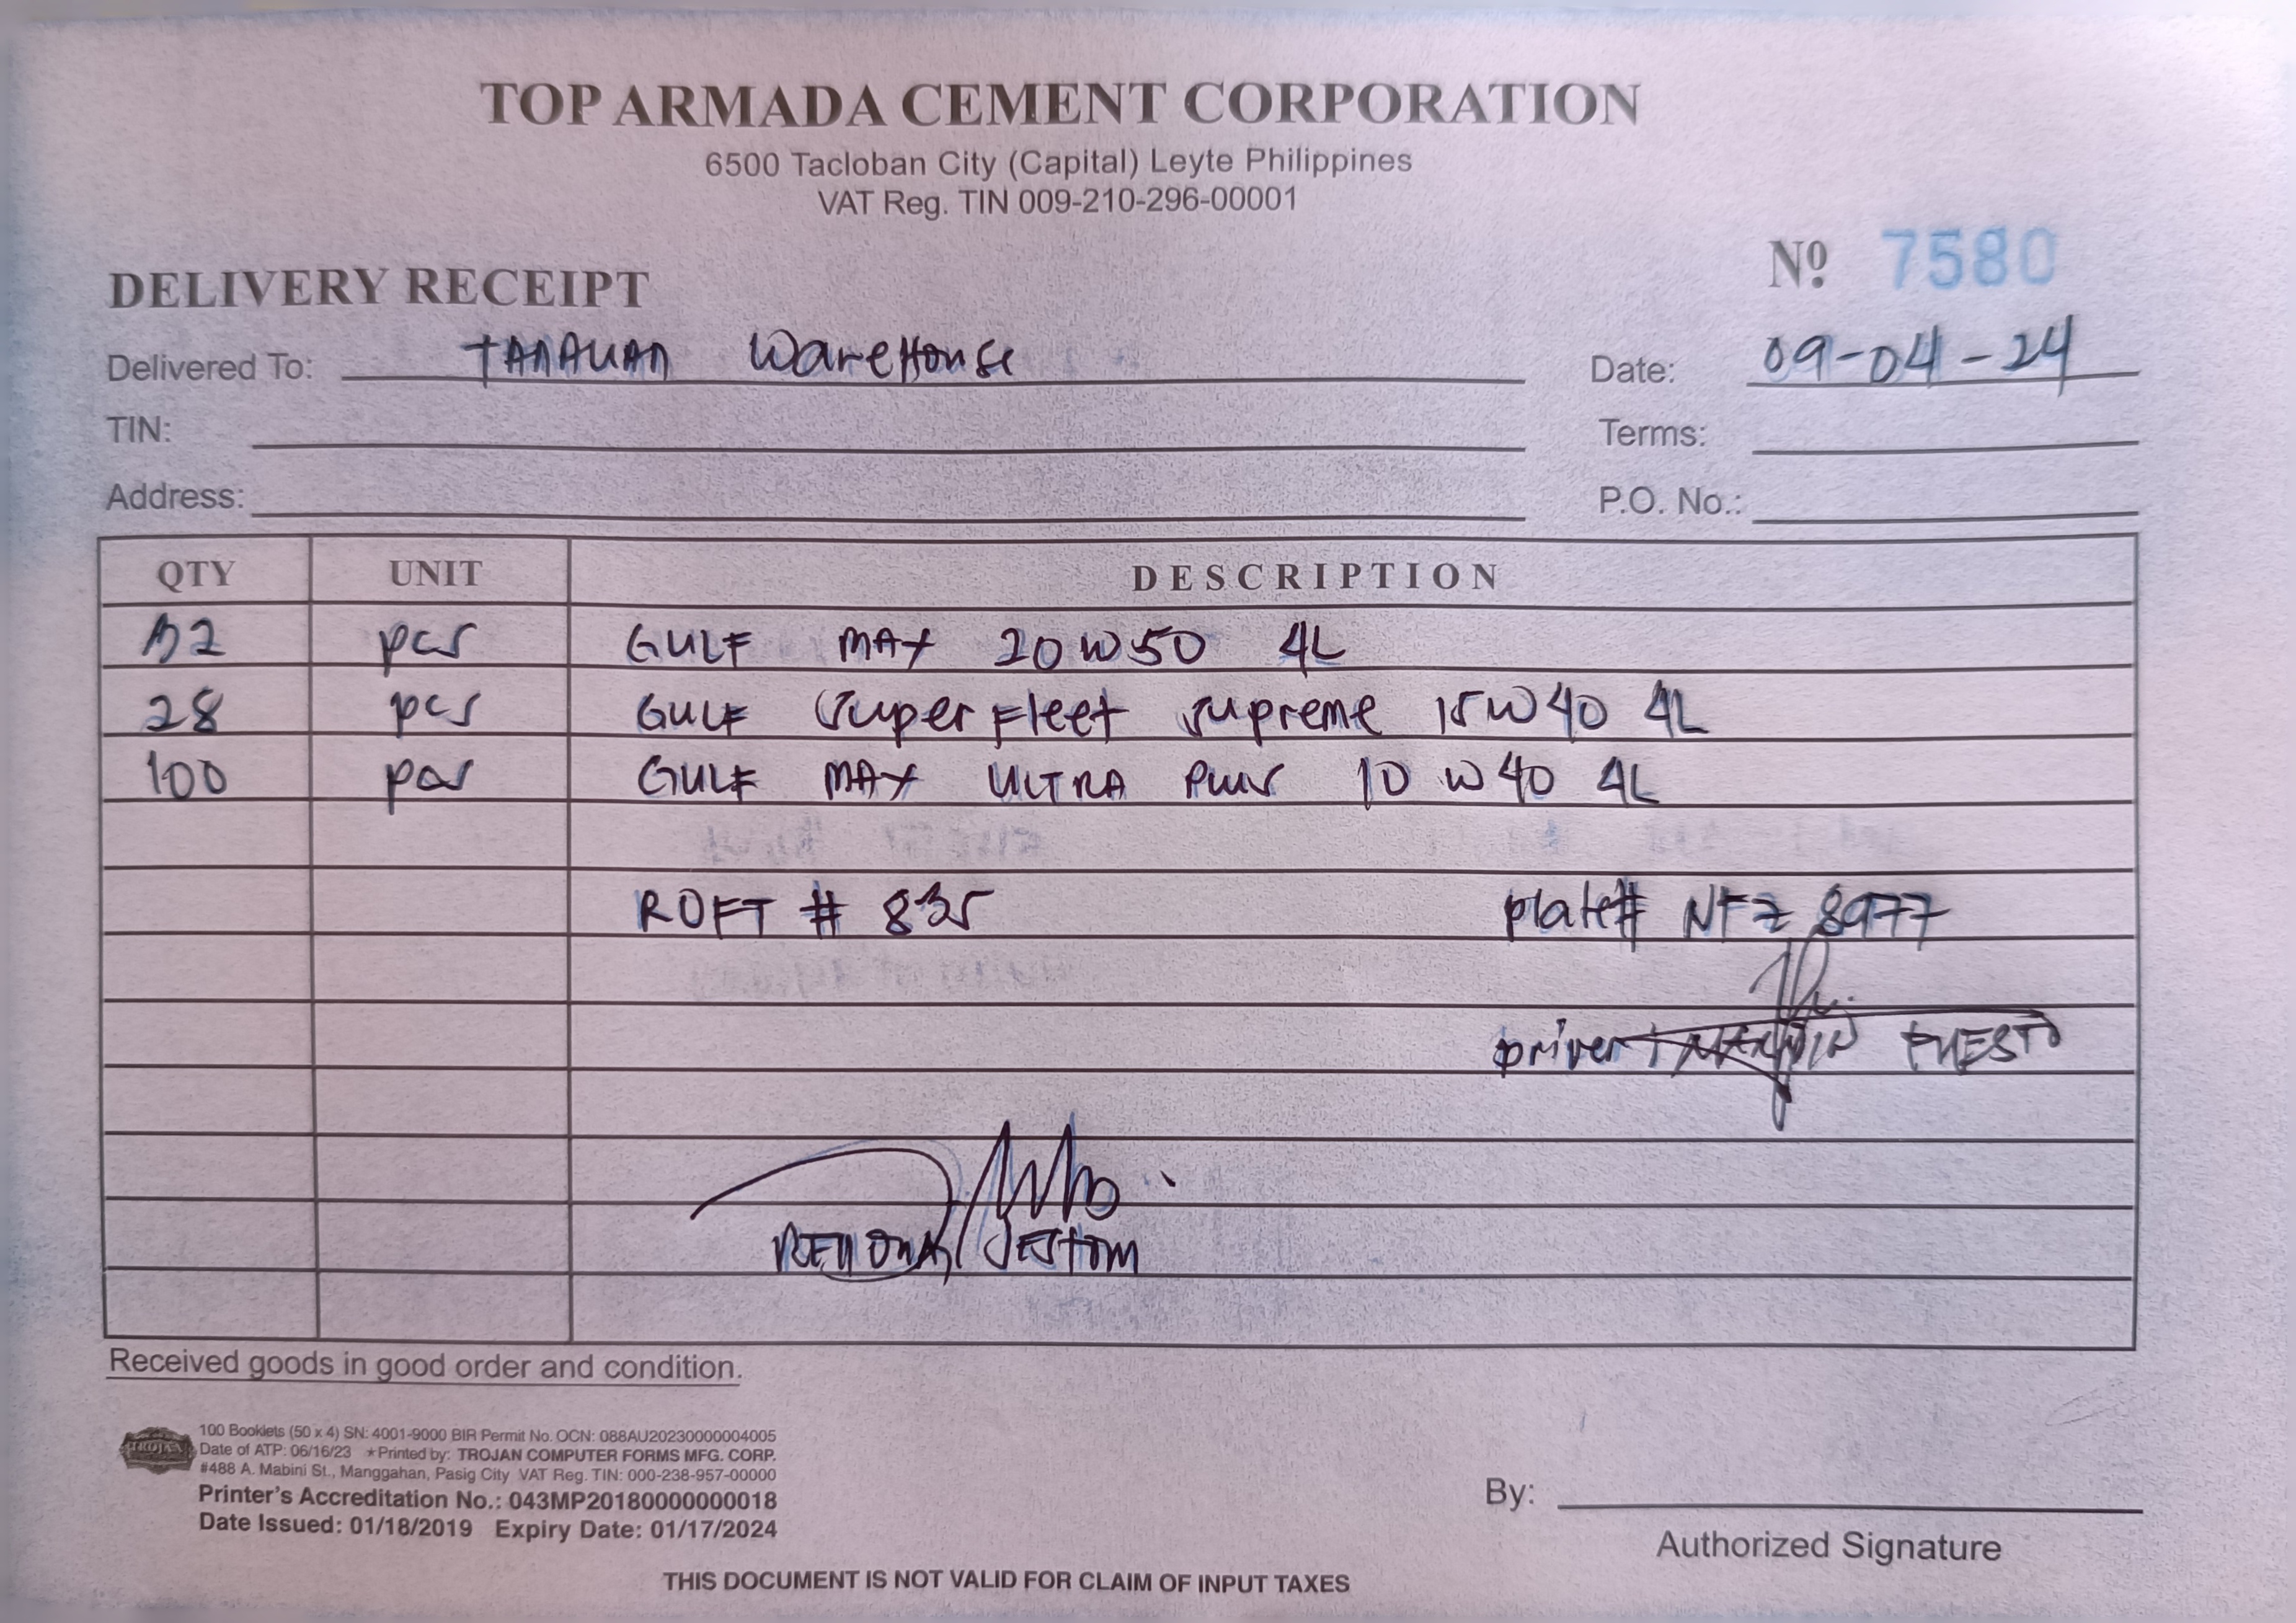 TOP ARMADA CEMENT CORPORATION
6500 Tacloban City (Capital) Leyte Philippines
VAT Reg. TIN 009-210-296-00001
Nº 7580
DELIVERY RECEIPT
Delivered To: TANAUAN WareHouse Date: 09-04-24
TIN: Terms:
Address: P.O. No.:
QTY UNIT DESCRIPTION
pcs GULF MAX 20W50 4L
28 pcs GULF Super Fleet supreme 15W40 4L
100 pcs GULF MAX ULTRA PLUS 10W40 4L
ROFT # 835 plate# NFZ 8977
Driver PUESTO
JESTOM
Received goods in good order and condition.
TROJAN
100 Booklets (50 x 4) SN: 4001-9000 BIR Permit No. OCN: 088AU20230000004005
Date of ATP: 06/16/23 *Printed by: TROJAN COMPUTER FORMS MFG. CORP.
#488 A. Mabini St., Manggahan, Pasig City VAT Reg. TIN: 000-238-957-00000
Printer's Accreditation No.: 043MP20180000000018
Date Issued: 01/18/2019 Expiry Date: 01/17/2024
By:
Authorized Signature
THIS DOCUMENT IS NOT VALID FOR CLAIM OF INPUT TAXES